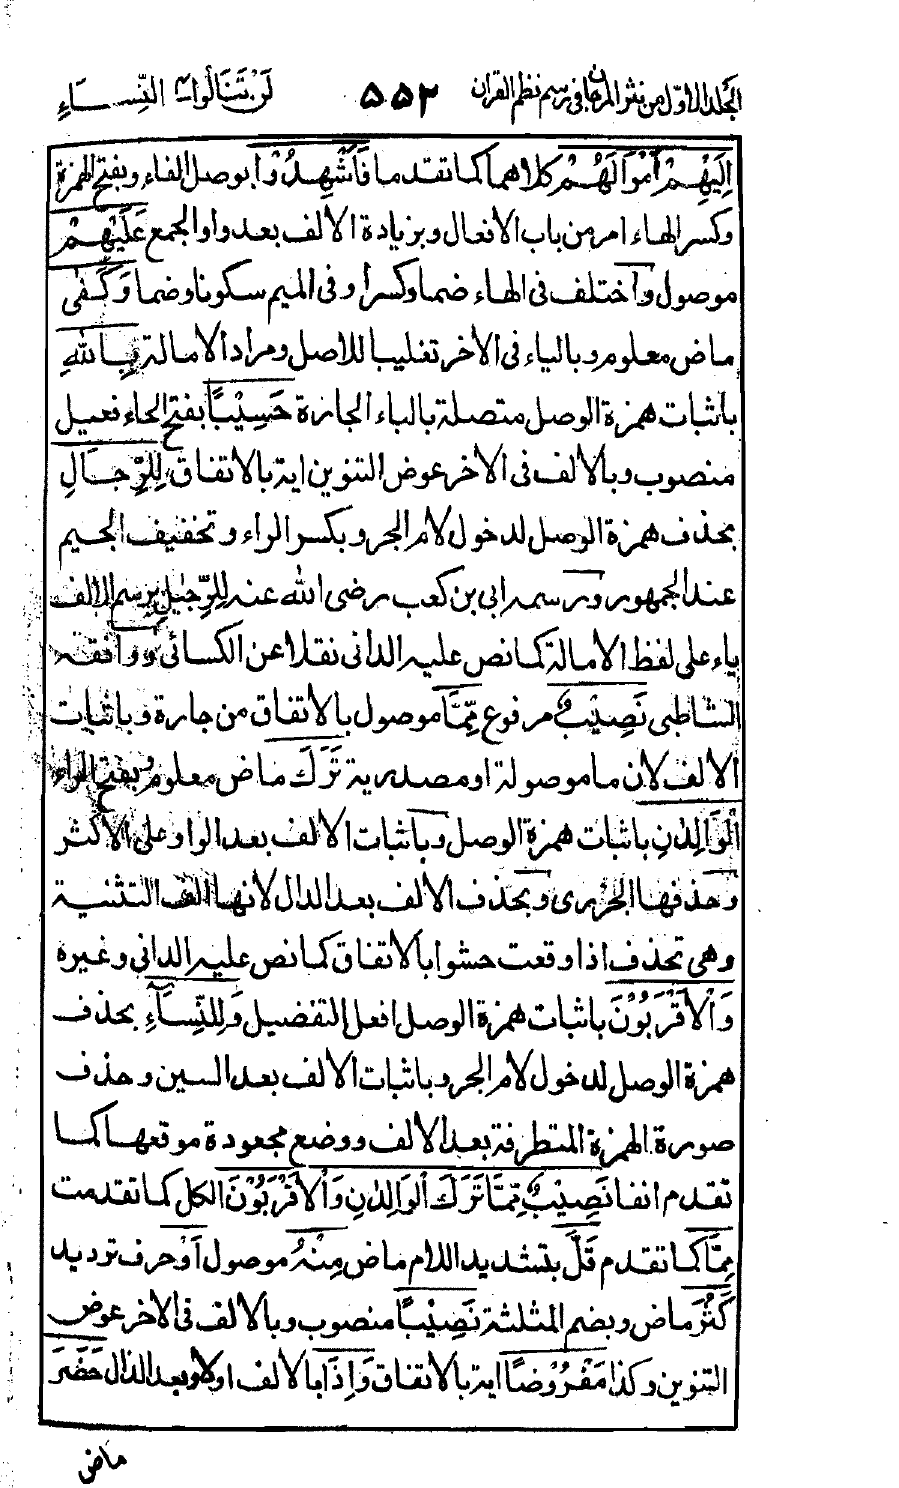 المجلد الاوّل من نثر المرجان فی رسم نظم القران ۵۵۲ لَنْ تَنَالُوا٤ النِّسَاءِ
اِلَيْهِمْ اَمْوَالَهُمْ كلاهما كما تقدما فَاَشْهِدُوْا بوصل الفاء وبفتح الهمزة
وكسر الهاء امر من باب الافعال وبزيادة الالف بعد واو الجمع عَلَيْهِمْ
موصول واختلف فی الهاء ضما وكسرا وفی الميم سكونا وضما وَكَفٰى
ماض معلوم وبالياء فی الاخر تغليبا للاصل ومراد الامالة بِاللّٰهِ
باثبات همزة الوصل متصلة بالباء الجارة حَسِيْبًا بفتح الحاء فعيل
منصوب وبالالف فی الاخر عوض التنوين اية بالاتفاق لِلرِّجَالِ
بحذف همزة الوصل لدخول لام الجر وبكسر الراء وتخفيف الجيم
عند الجمهور ورسمه ابی بن كعب رضی الله عنه لِلرِّجِيْلِ برسم الالف
ياء علی لفظ الامالة كما نص عليه الدانی نقلا عن الكسائی ووافقه
الشاطبی نَصِيْبٌ مرفوع مِّمَّا موصول بالاتفاق من جارة وباثبات
الالف لان ما موصولة او مصدرية تَرَكَ ماض معلوم بفتح الراء
الْوَالِدٰنِ باثبات همزة الوصل وباثبات الالف بعد الواو علی الاكثر
وحذفها الجزری وبحذف الالف بعد الدال لانها الف التثنية
وهی تحذف اذا وقعت حشوا بالاتفاق كما نص عليه الدانی وغيره
وَالْاَقْرَبُوْنَ باثبات همزة الوصل افعل التفضيل وَلِلنِّسَآءِ بحذف
همزة الوصل لدخول لام الجر وباثبات الالف بعد السين وحذف
صورة الهمزة المتطرفة بعد الالف ووضع مجعودة موقعها كما
تقدم انفا نَصِيْبٌ مِّمَّا تَرَكَ الْوَالِدٰنِ وَالْاَقْرَبُوْنَ الكل كما تقدمت
مِمَّا كما تقدم قَلَّ بتشديد اللام ماض مِنْهُ موصول اَوْ حرف ترديد
كَثُرَ ماض وبضم المثلثة نَصِيْبًا منصوب وبالالف فی الاخر عوض
التنوين وكذا مَفْرُوْضًا اية بالاتفاق وَاِذَا بالالف اولا وبعد الذال حَضَرَ
ماض